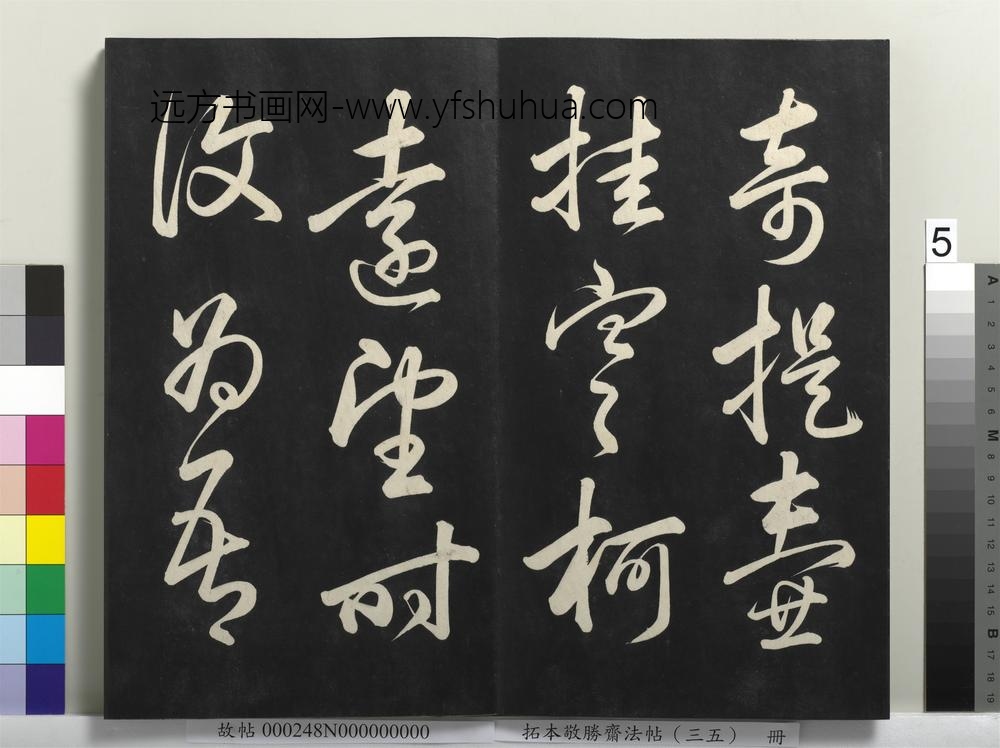 奇提壺
挂寒柯
遠望時
復為吾
远方书画网-www.yfshuhua.com
5
A
1
2
3
4
5
6
M
8
9
10
11
12
13
14
15
B
17
18
19
故帖 000248N000000000
拓本敬勝齋法帖（三五） 冊